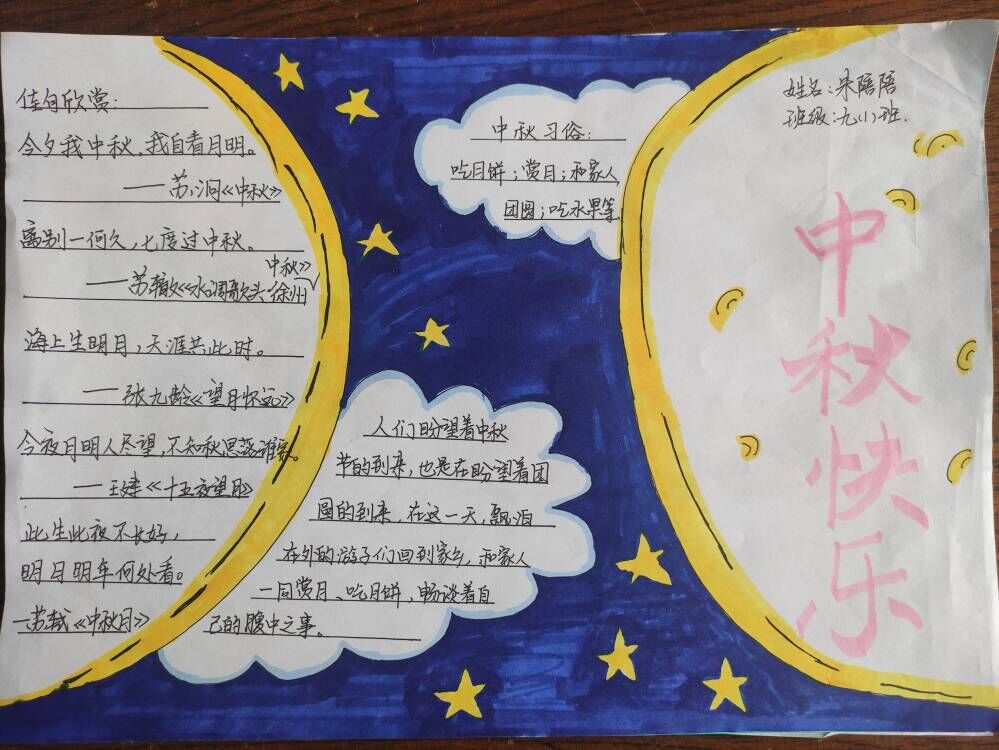 佳句欣赏：
今夕我中秋，我自看月明。
——苏泂《中秋》
离别一何久，七度过中秋。
——苏辙《水调歌头·徐州
中秋》
海上生明月，天涯共此时。
——张九龄《望月怀远》
今夜月明人尽望，不知秋思落谁家。
——王建《十五夜望月》
此生此夜不长好，
明月明年何处看。
—苏轼《中秋月》
中秋习俗：
吃月饼；赏月；和家人
团圆；吃水果等
人们盼望着中秋
节的到来，也是在盼望着团
圆的到来，在这一天，飘泊
在外的游子们回到家乡，和家人
一同赏月、吃月饼，畅谈着自
己的腹中之事。
姓名：朱陪陪
班级：九(1)班.
中秋快乐